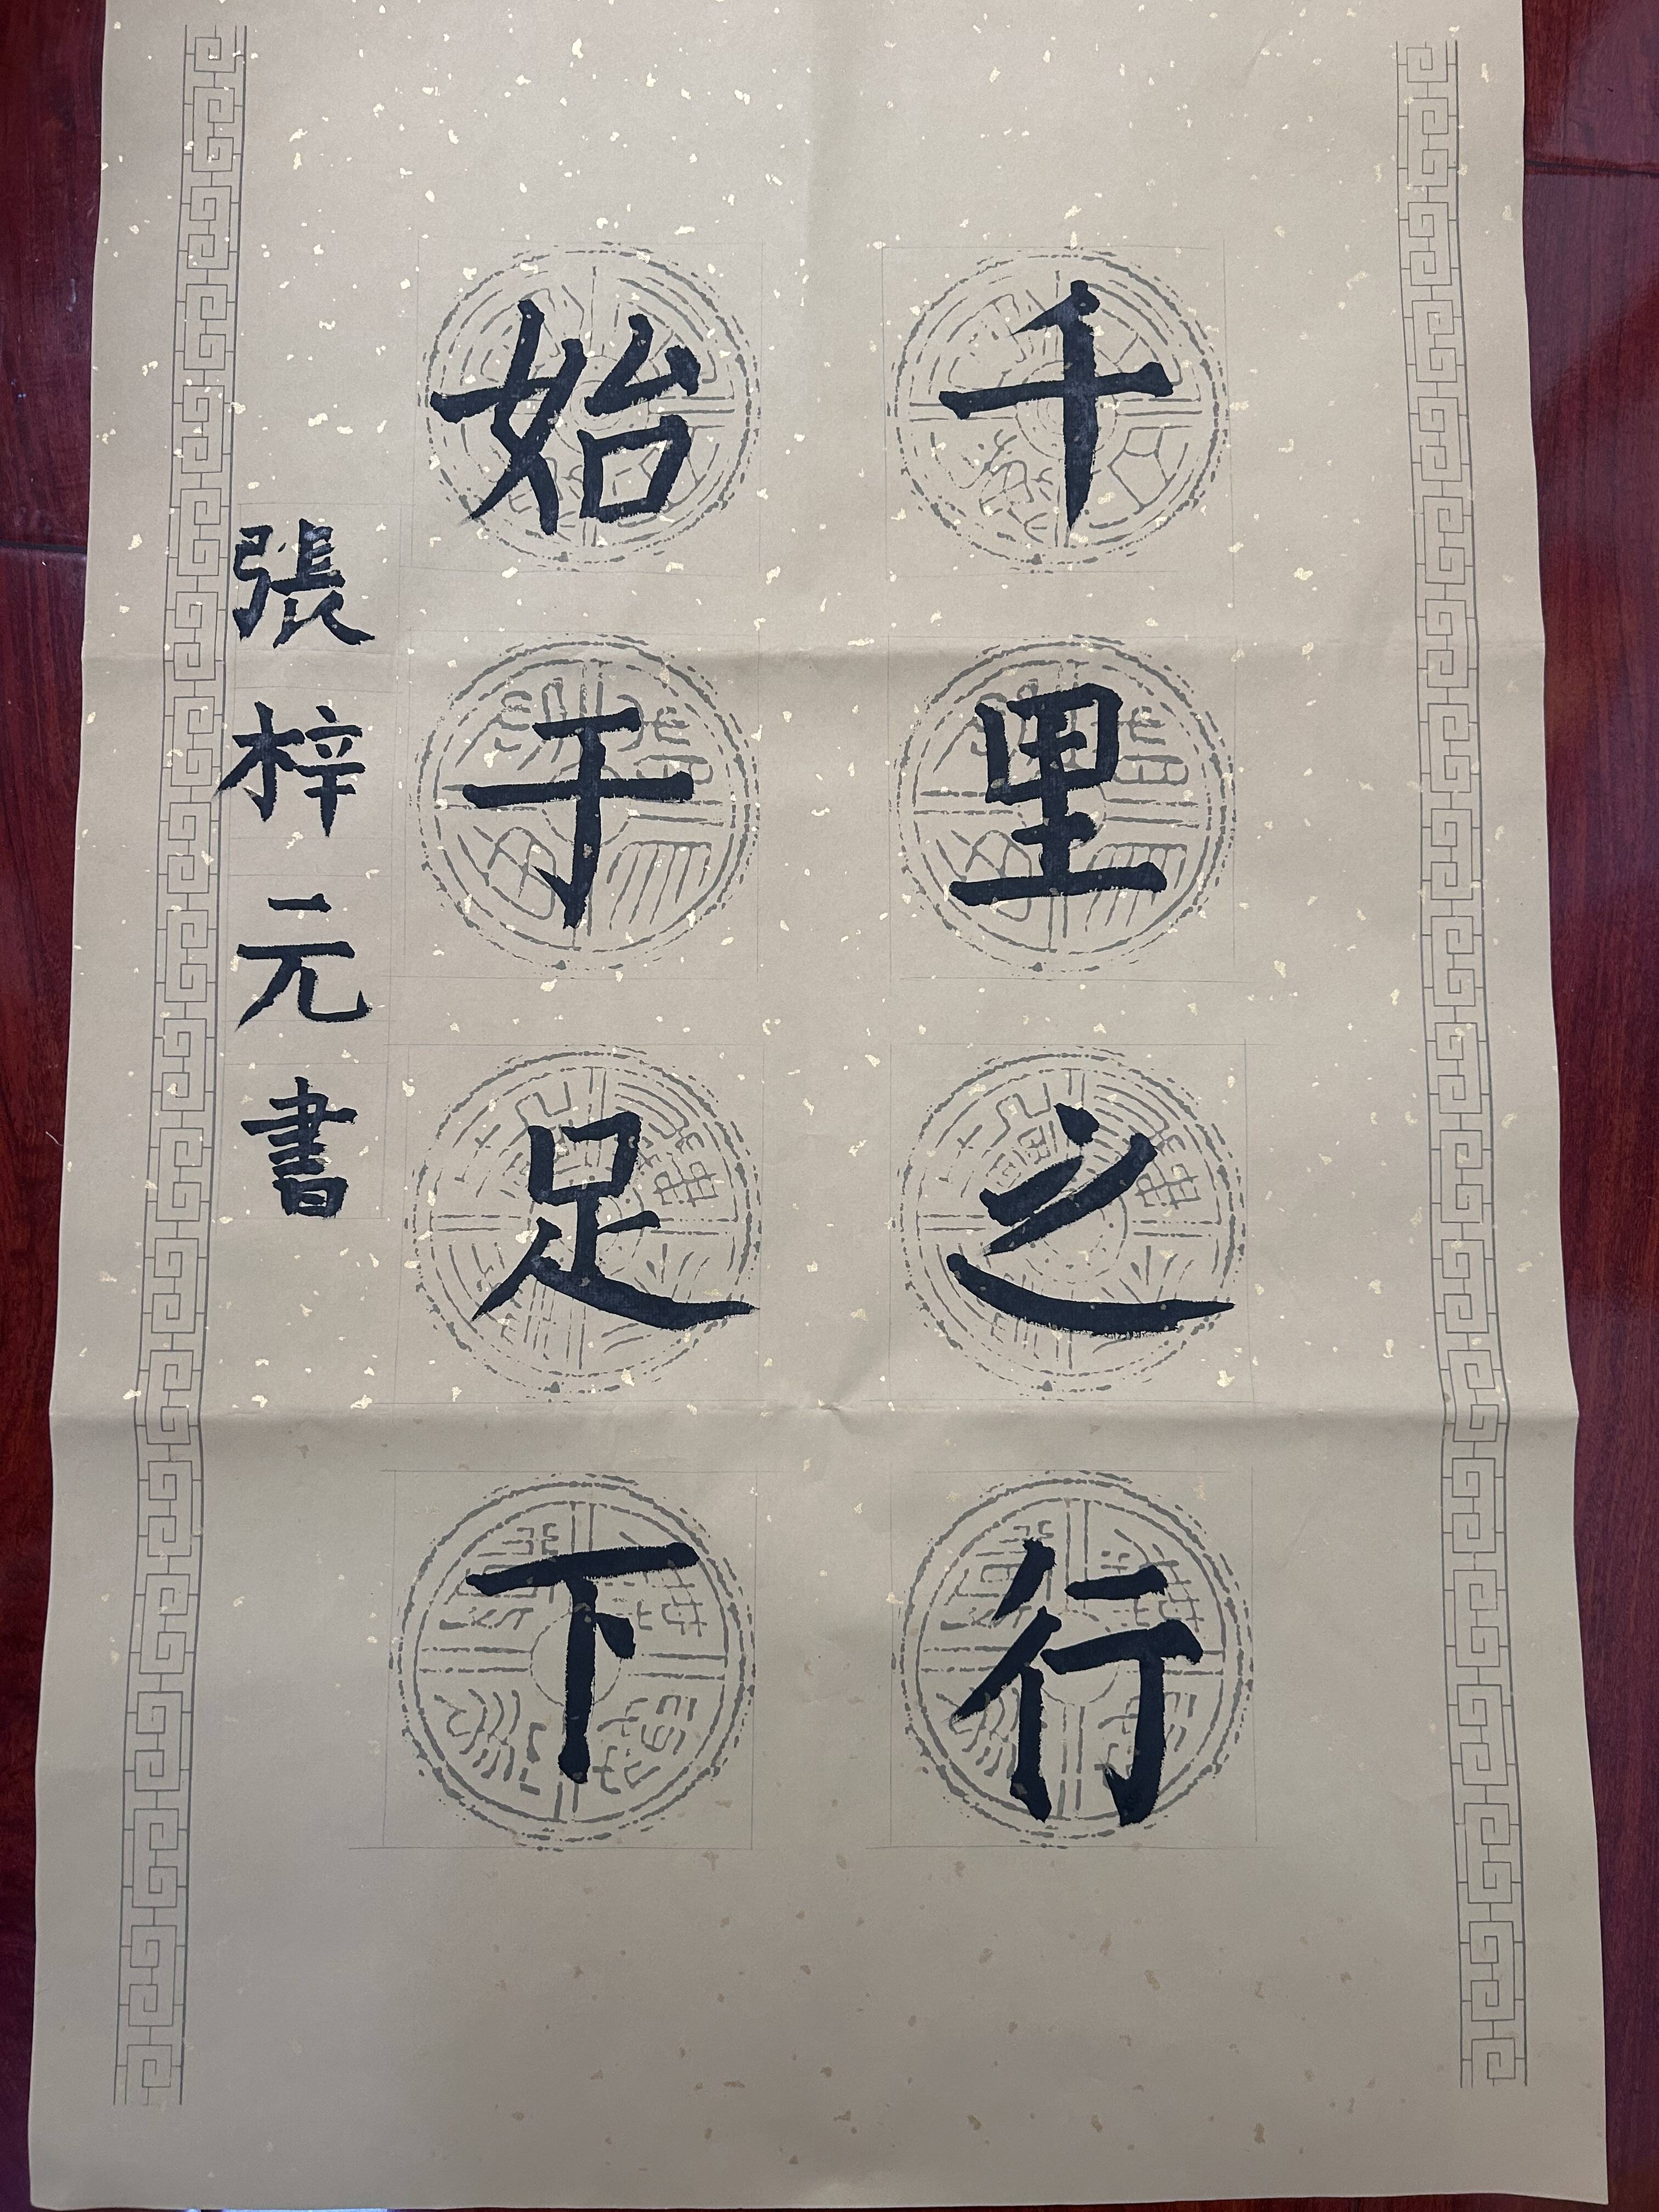 千里之行
始于足下
張梓元書